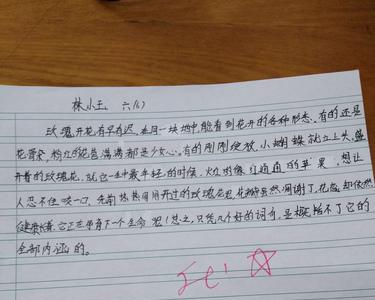 林小玉 六(6)
玫瑰开花有早有迟,在同一块地中,能看到花开的各种形态,有的还是
花骨朵,粉红的花苞满满都是少女心。有的刚刚绽放,小蝴蝶就立上头,盛
开着的玫瑰花,就它一生中最年轻的时候,火红的像红通通的苹果,想让
人忍不住咬一口,先前热热闹闹开过的玫瑰花思,花瓣虽然凋谢了,花蕊却依然
健康,它正在孕育下一个生命思!总之,只凭几个好的词句,是概括不了它的
全部内涵的。